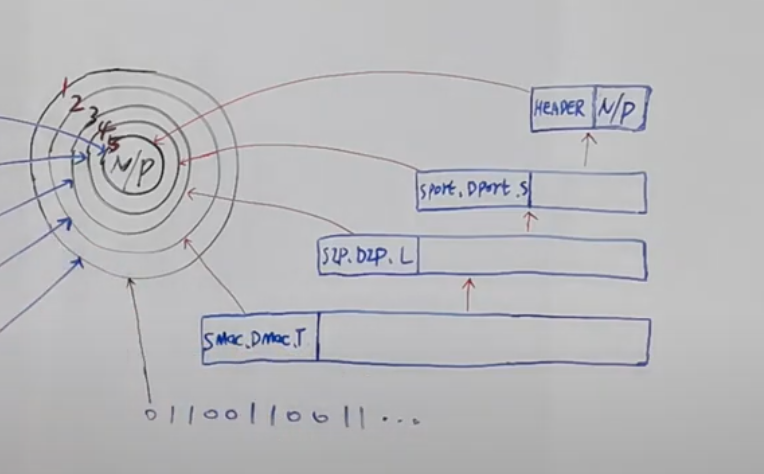 1
2
3
4
5
N/P
HEADER N/P
SPort, DPort, S
SIP. DIP. L
SMac, DMac, T
011001100 11 ...